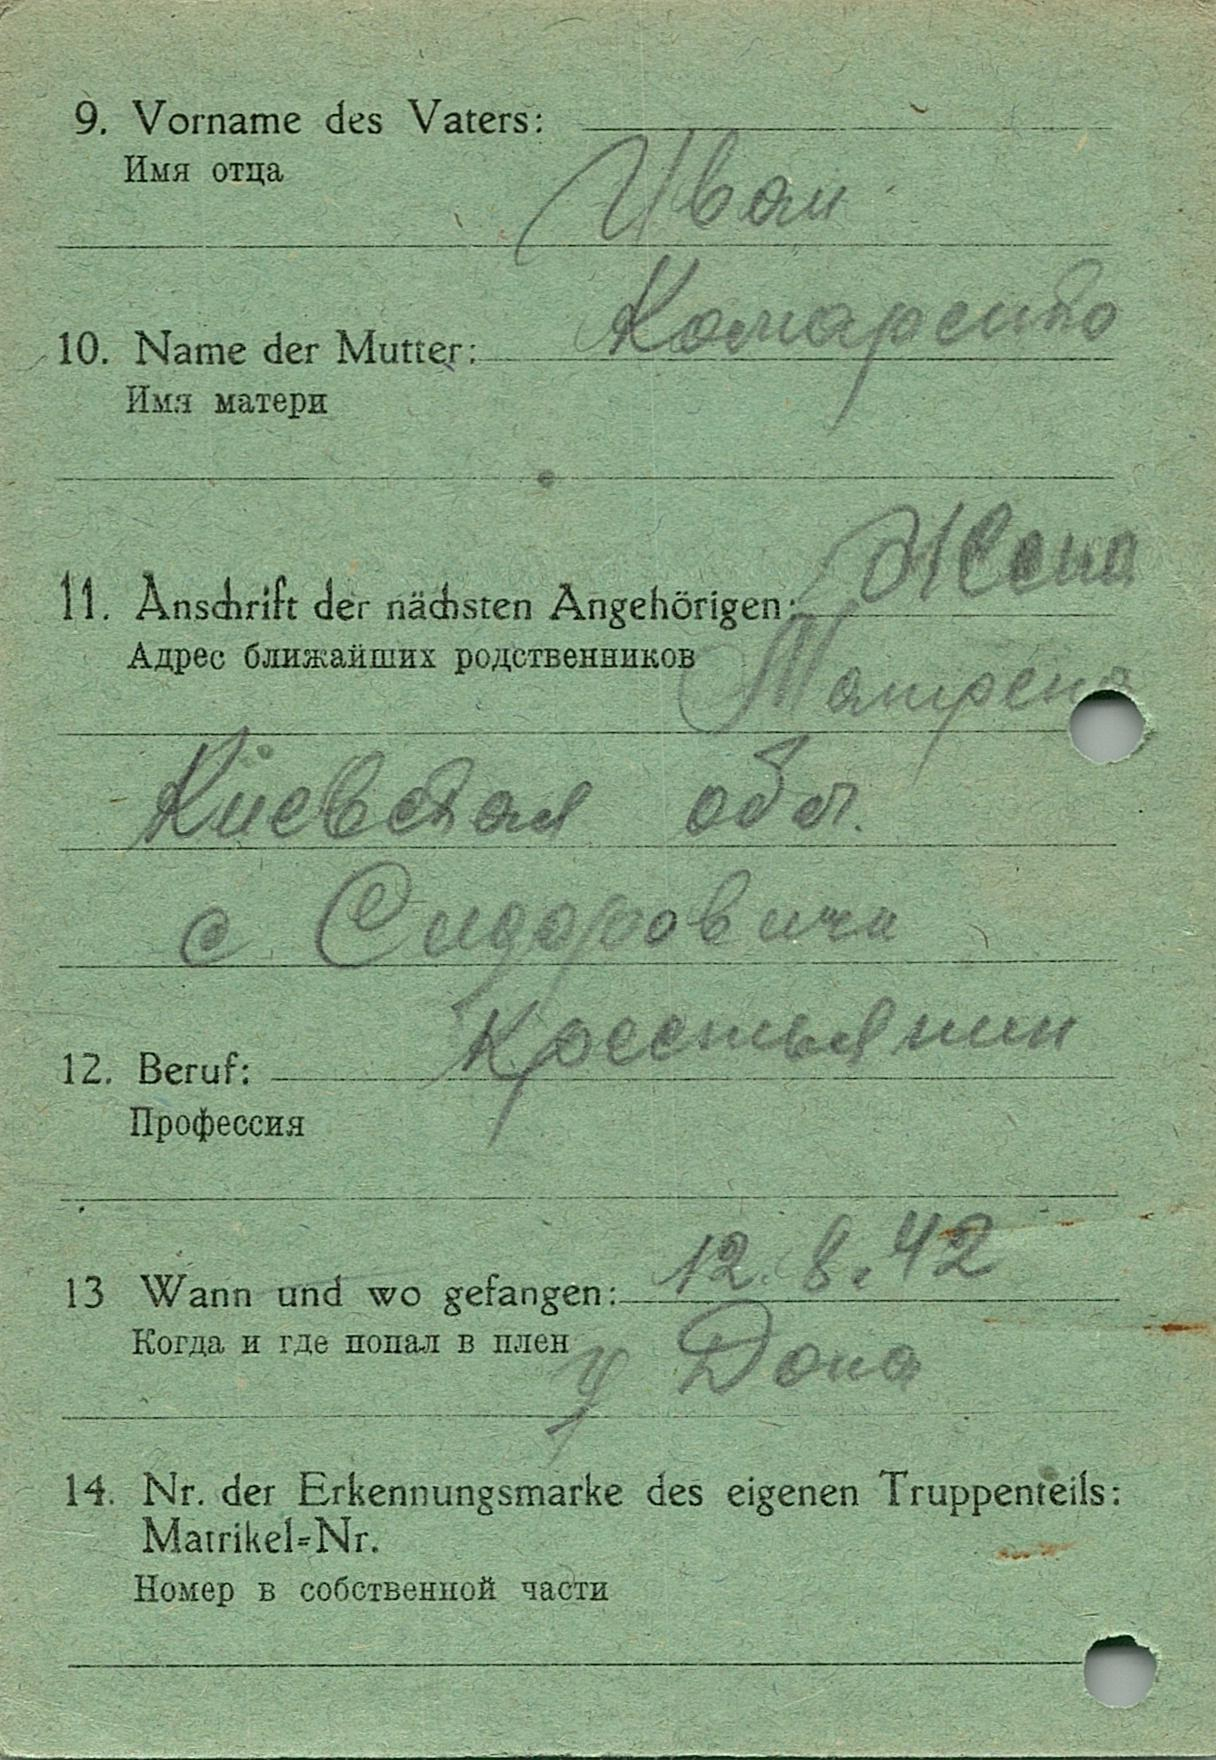 9. Vorname des Vaters:
Имя отца
Иван
10. Name der Mutter: Комаренко
Имя матери
11. Anschrift der nächsten Angehörigen: Жена
Адрес ближайших родственников
Киевская обл.
с Сидоровичи
12. Beruf: Крестьянин
Профессия
13 Wann und wo gefangen: 12.8.42
Когда и где попал в плен у Дона
14. Nr. der Erkennungsmarke des eigenen Truppenteils:
Matrikel-Nr.
Номер в собственной части